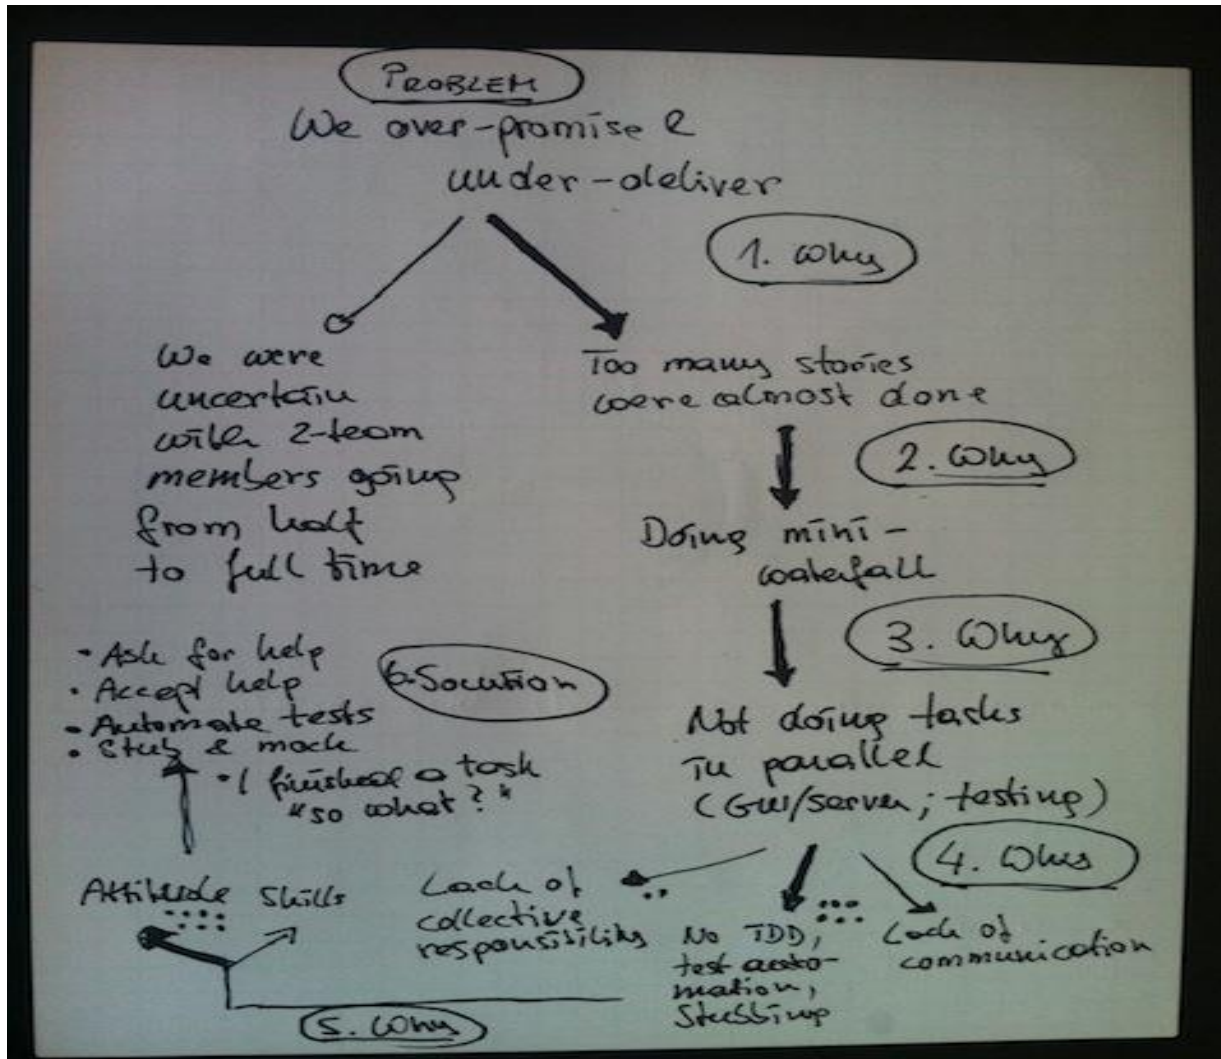 PROBLEM
We over-promise &
under-deliver
1. Why
We were
uncertain
with 2-team
members going
from half
to full time
Too many stories
were almost done
2. Why
Doing mini-
waterfall
3. Why
Not doing tasks
in parallel
(GW/server; testing)
4. Why
Lack of
collective
responsibility
No TDD,
test auto-
mation,
Stubbing
Lack of
communication
5. Why
Attitude Skills
6. Solution
• Ask for help
• Accept help
• Automate tests
• Stub & mock
• I finished a task
"so what?"